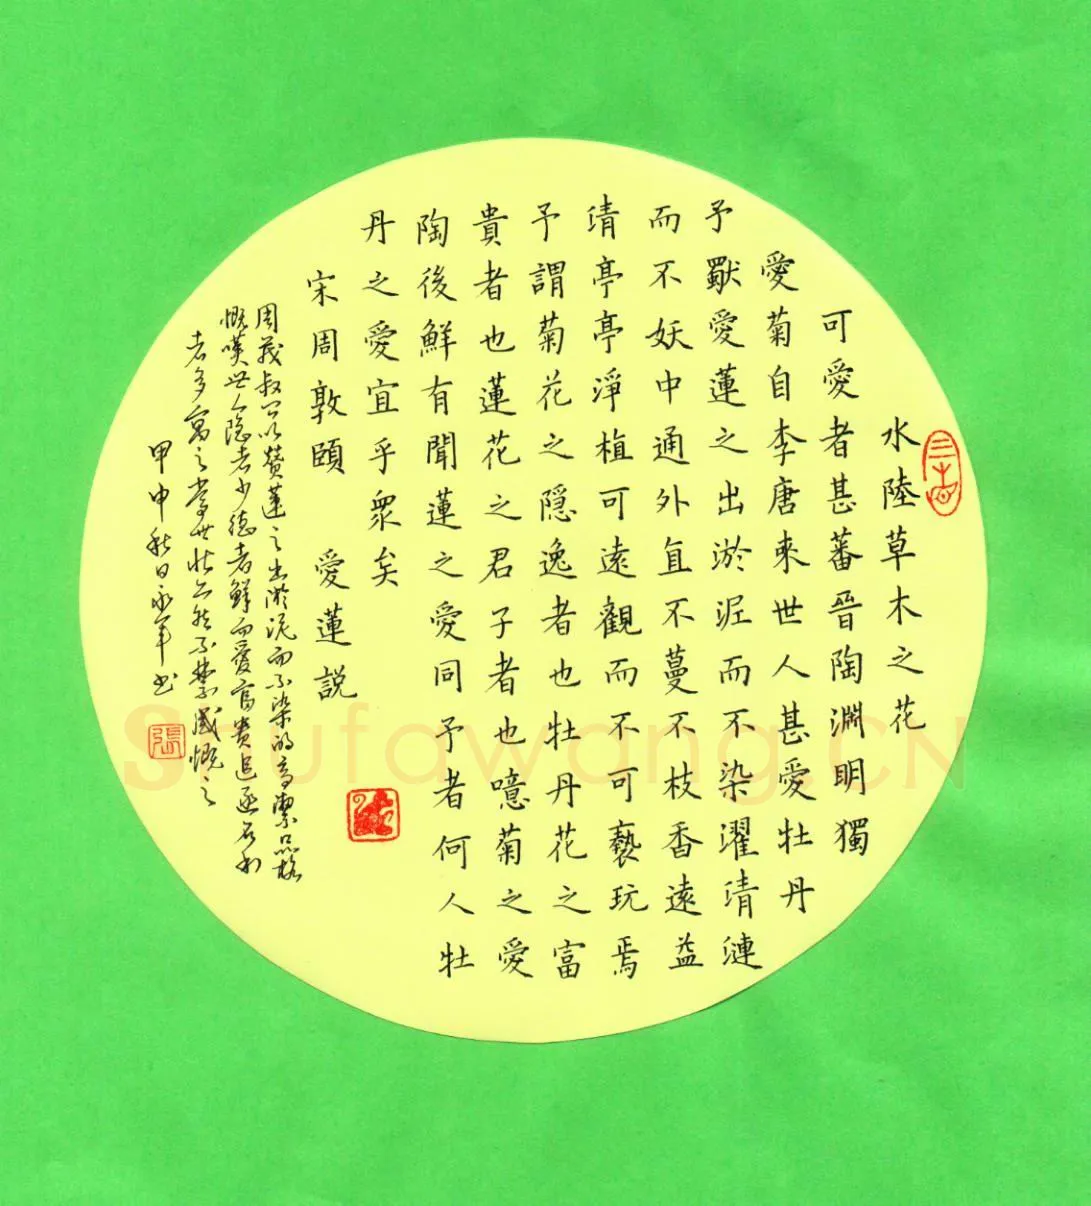 水陸草木之花
可愛者甚蕃晉陶淵明獨
愛菊自李唐來世人甚愛牡丹
予獸愛蓮之出淤泥而不染濯清漣
而不妖中通外直不蔓不枝香遠益
清亭亭淨植可遠觀而不可褻玩焉
予謂菊花之隱逸者也牡丹花之富
貴者也蓮花之君子者也噫菊之愛
陶後鮮有聞蓮之愛同予者何人牡
丹之愛宜乎眾矣
宋周敦頤 愛蓮説
周茂叔公以赞蓮之出淤泥而不染的高潔品格
慨嘆世人隐者少德者鮮而愛富貴追逐名利
者多寓之當世状亦然不禁感慨之
甲申秋日永军书
張
Shufawang.CN